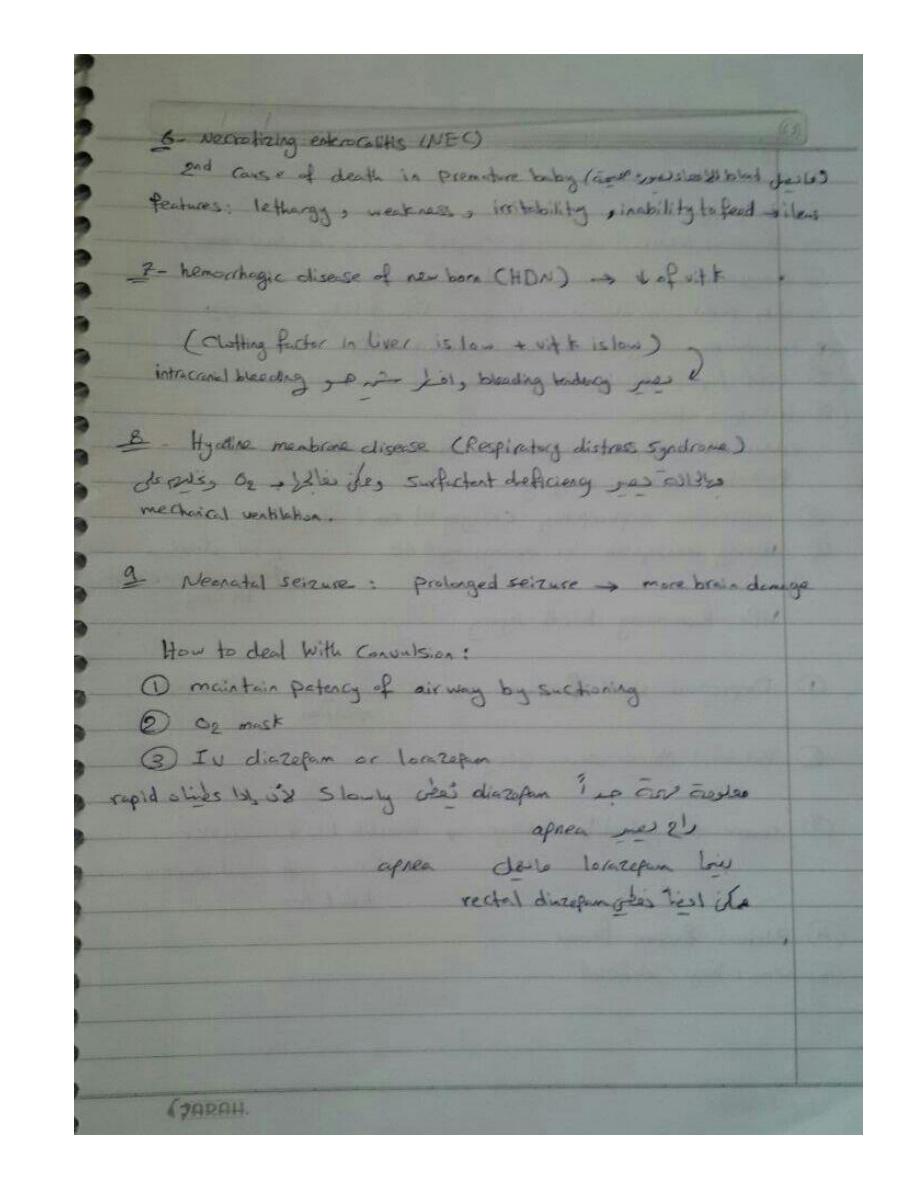 6- Necrotizing enterocolitis (NEC)
2nd cause of death in premature baby
features: lethargy, weakness, irritability, inability to feed → ileus
7- hemorrhagic disease of new born (HDN) → ↓ of vit k
(Clotting factor in liver is low + vit k is low)
يصير bleeding tendency واخطر شيء هو intracranial bleeding
8- Hyaline membrane disease (Respiratory distress syndrome)
يصير surfactent deficiency وممكن نعالجها بـ O2 ونخليهم على
mechanical ventilation.
9 Neonatal seizure: prolonged seizure → more brain damage
How to deal with Convulsion:
① maintain patency of air way by suctioning
② O2 mask
③ IV diazepam or lorazepam
معلومة مهمة جداً diazepam نعطي slowly لأن إذا اعطيناه rapid
راح يصير apnea
بينما lorazepam مايعمل apnea
ممكن ايضاً نعطي rectal diazepam
FARAH.